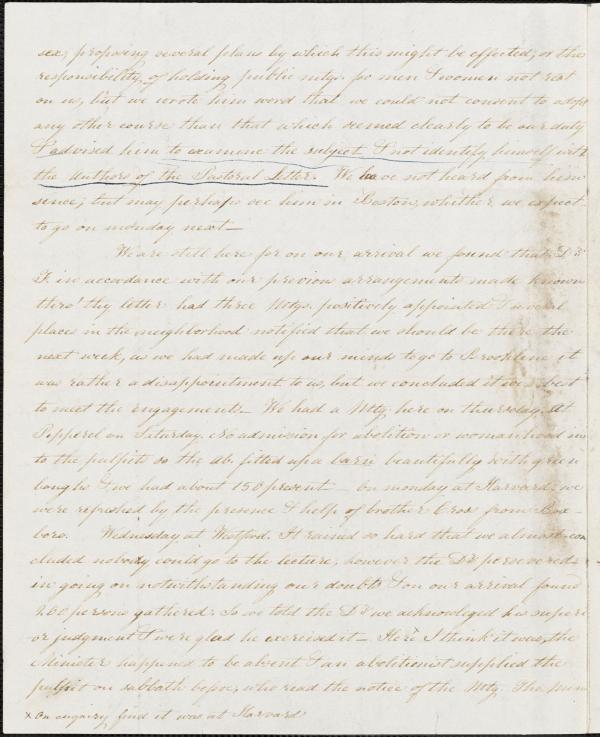 sex, proposing several plans by which this might be effected, or the
responsibility of holding public mtgs. for men & women not rest
on us, but we wrote him word that we could not consent to adopt
any other course than that which seemed clearly to be our duty
& advised him to examine the subject & not identify himself with
the Authors of the Pastoral Letter. We have not heard from him
since, but may perhaps see him in Boston, whither we expect
to go on monday next—
We are still here for on our arrival we found that Dr
F. in accordance with our previous arrangements made known
thro' thy letter had three Mtgs. positively appointed & several
places in the neighborhood notified that we should be there the
next week, as we had made up our minds to go to Brookline it
was rather a disappointment to us, but we concluded it was best
to meet the engagements— We had a Mtg. here on thursday, at
Pepperel on Saturday. No admission for abolition or womanhood in
to the pulpits so the Ab. fitted up a barn beautifully with green
boughs & we had about 150 present— On monday at Harvard. we
were refreshed by the presence & help of brother Cross from Box-
boro. Wednesday at Westford. It rained so hard that we almost con
cluded nobody could go to the lecture, however the Dr persevered
in going on notwithstanding our doubts & on our arrival found
260 persons gathered. So we told the Dr we acknowledged his superi
or judgment & were glad he exercised it— Here x I think it was, the
Minister happened to be absent & an abolitionist supplied the
pulpit on sabbath before, who read the notice of the Mtg. The
x On enquiry find it was at Harvard